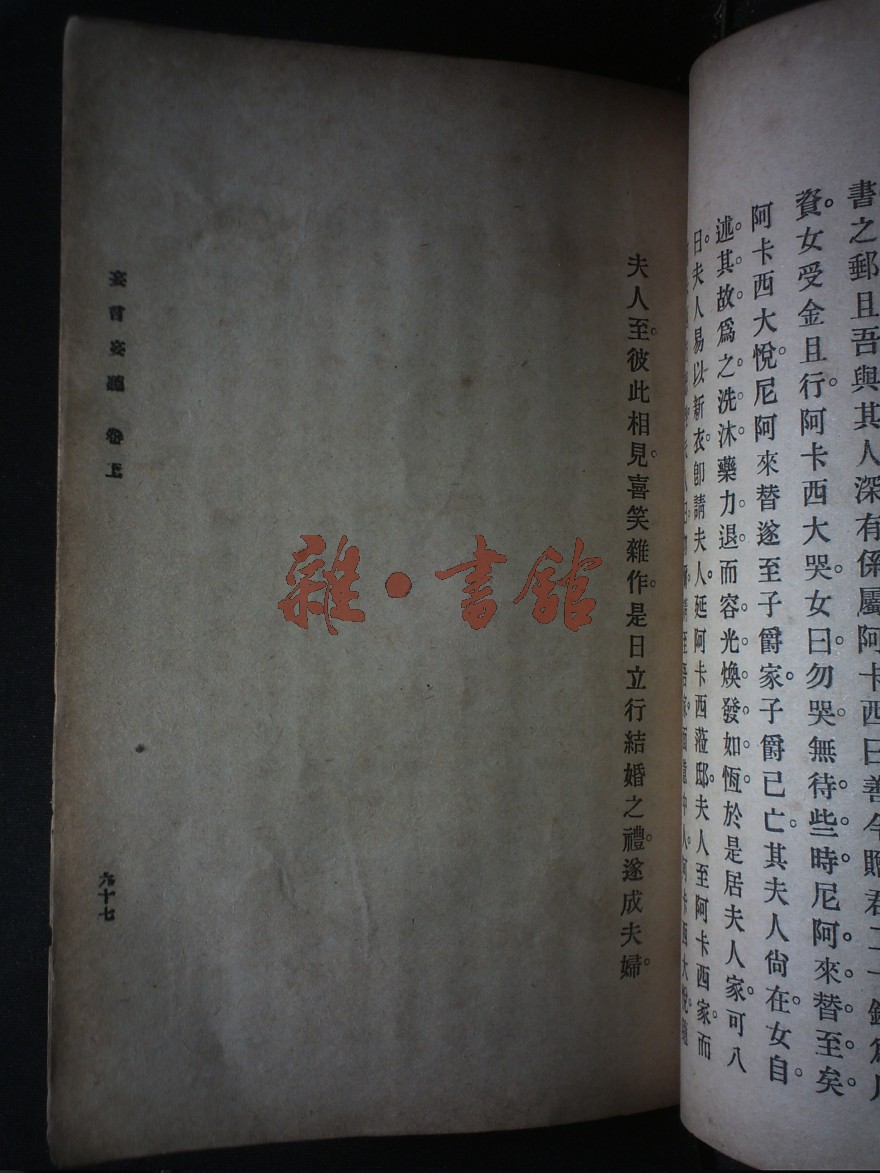 書之郵且吾與其人深有係屬阿卡西曰善今贈君二十鎊爲
資。女受金且行。阿卡西大哭。女曰勿哭。無待些時。尼阿來替至矣。
阿卡西大悅。尼阿來替遂至子爵家。子爵已亡。其夫人尙在。女自
述。其故。爲之洗沐。藥力退。而容光煥發。如恆。於是居夫人家。可八
日。夫人易以新衣。卽請夫人。延阿卡西蒞邸。夫人至阿卡西家。而
夫人至。彼此相見。喜笑雜作。是日立行結婚之禮。遂成夫婦。
妄言妄聽 卷上
六十七
雜·書館